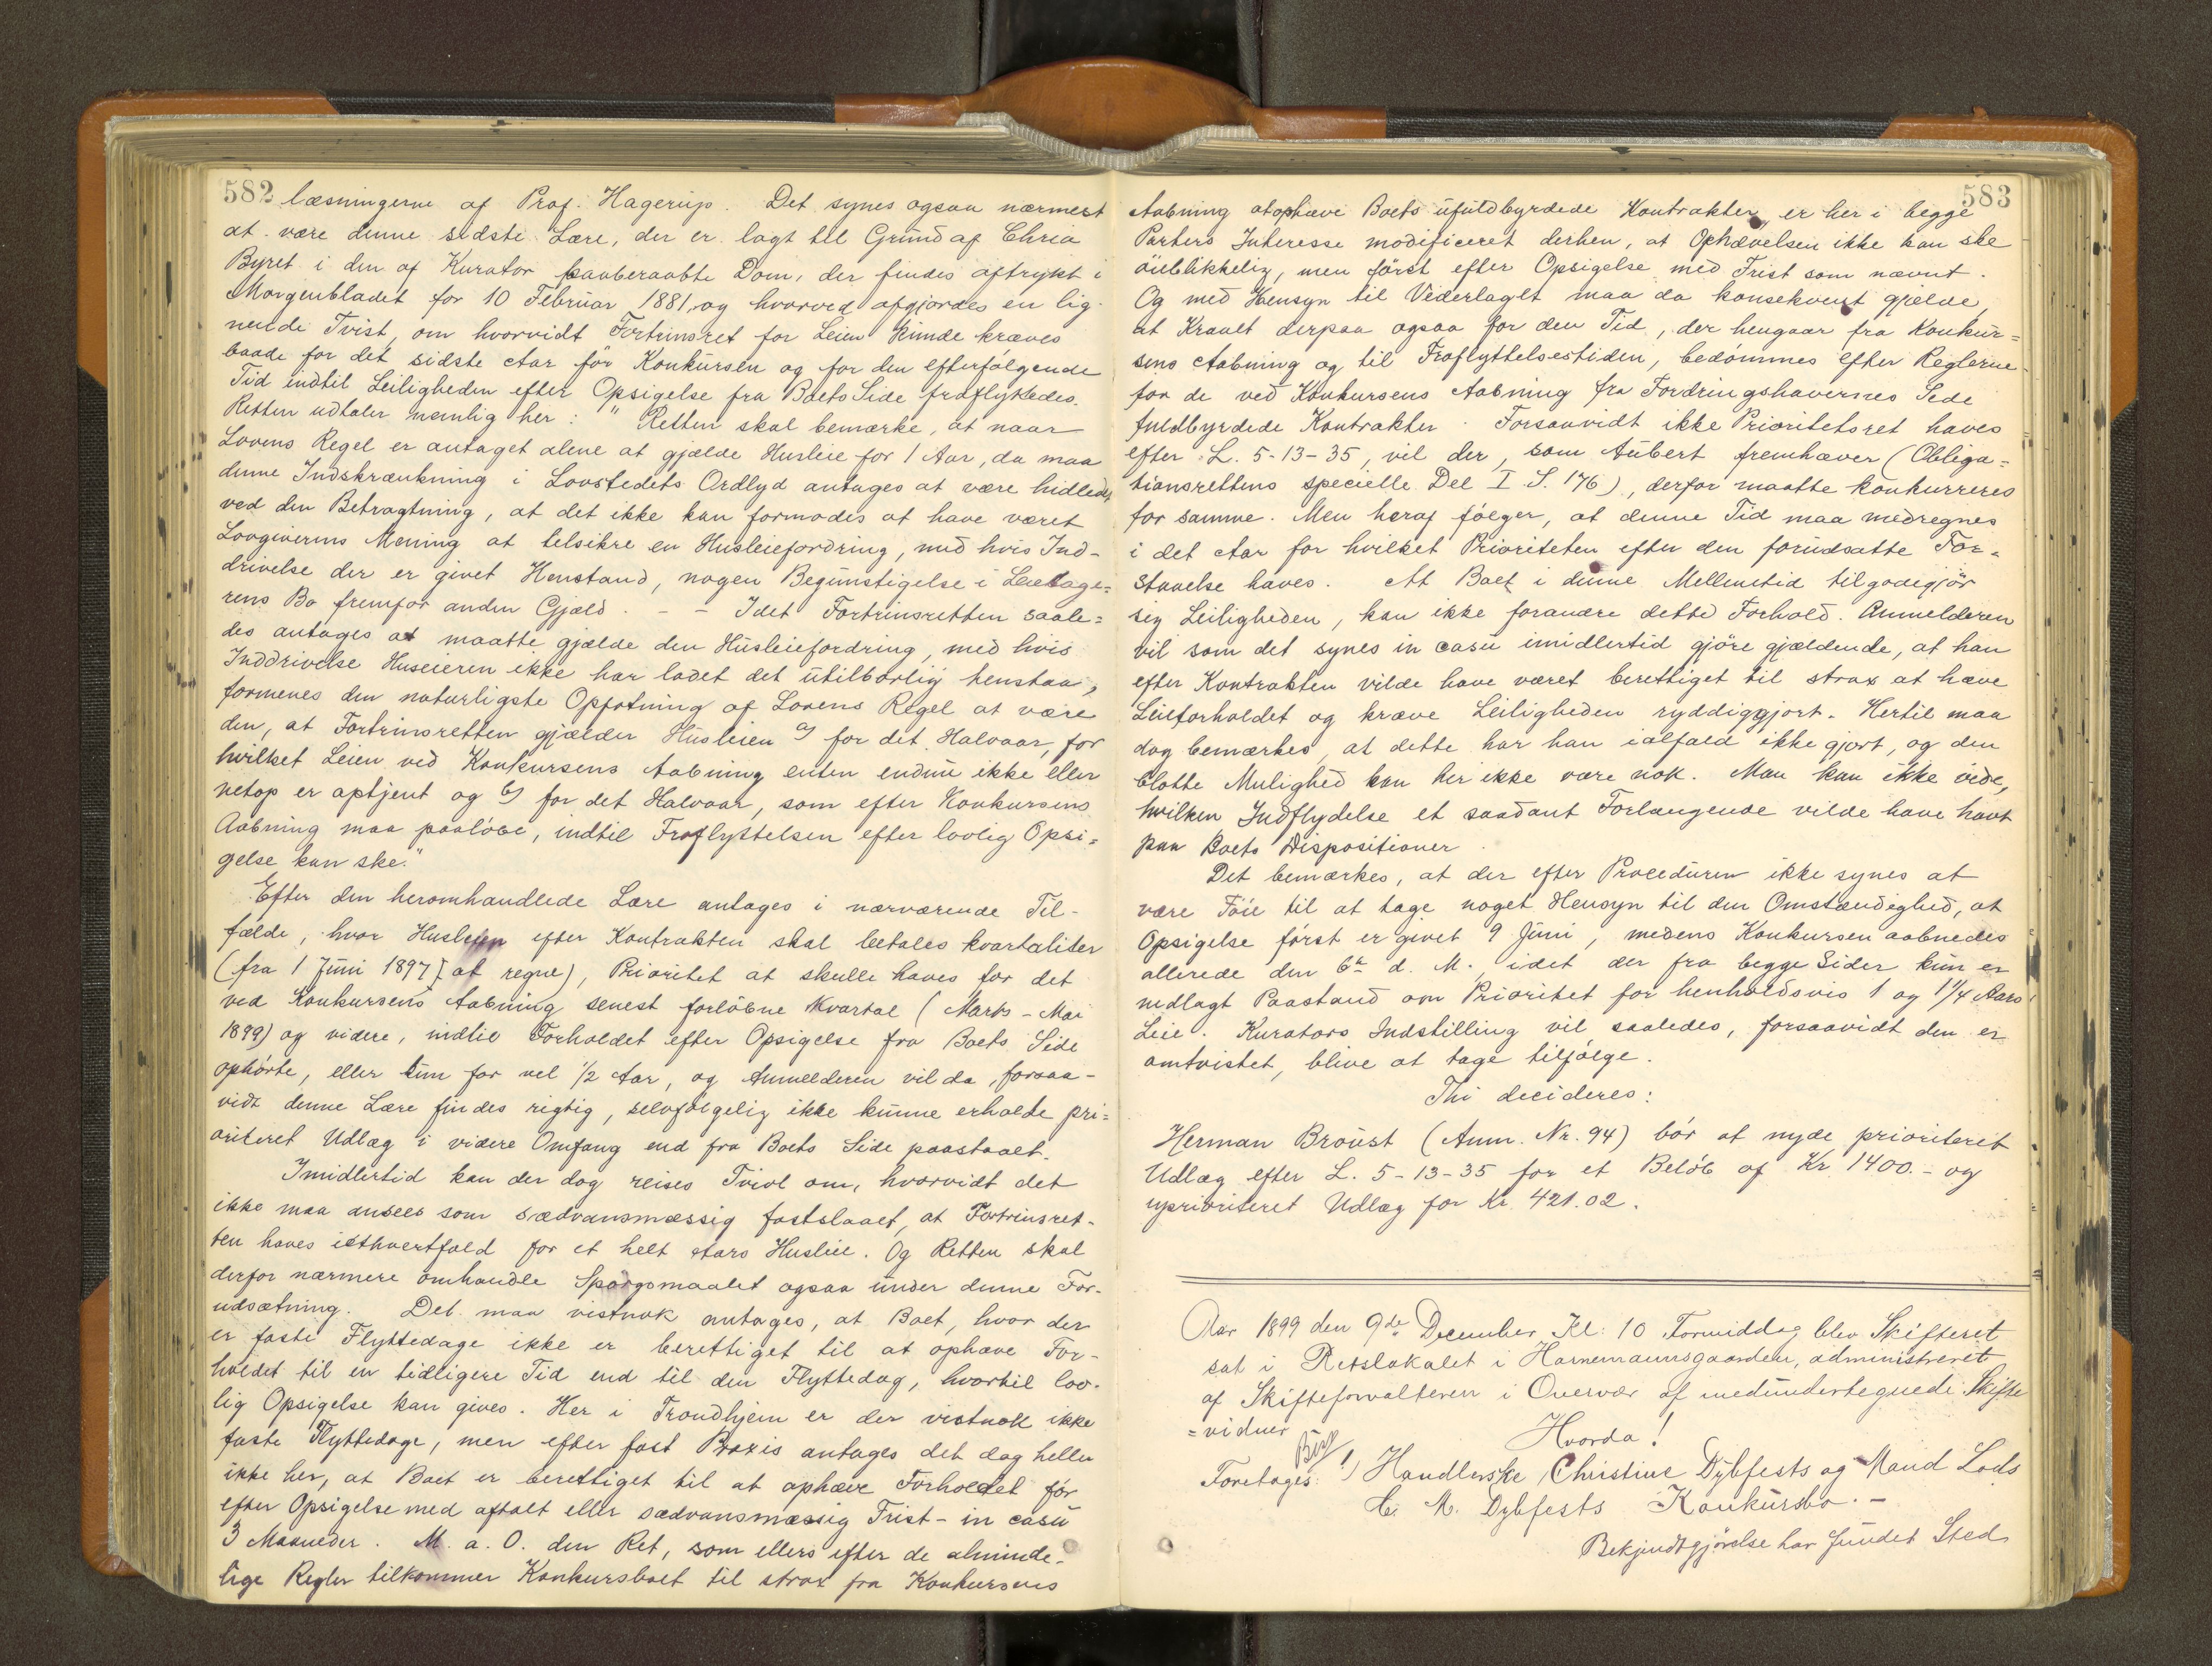 582
læsningerne af Prof. Hagerup. Det synes ogsaa nærmest
at være denne sidste Lære, der er lagt til Grund af Chria
Byret i den af Kurator paaberaabte Dom, der findes aftrykt i
Morgenbladet for 10 Februar 1881, og hvorved afgjordes en lig-
nende Tvist, om hvorvidt Fortrinsret for Leien kunde kræves
baade for det sidste Aar før Konkursen og for den efterfølgende
Tid indtil Leiligheden efter Opsigelse fra Boets Side fraflyttedes.
Retten udtaler nemlig her: "Retten skal bemærke, at naar
Lovens Regel er antaget alene at gjælde Husleie for 1 Aar, da maa
denne Indskrænkning i Lovstedets Ordlyd antages at være hidledet
ved den Betragtning, at det ikke kan formodes at have været
Lovgiverens Mening at tilsikre en Husleiefordring, med hvis Ind-
drivelse der er givet Henstand, nogen Begunstigelse i Leietage=
rens Bo fremfor anden Gjæld. - - Idet Fortrinsretten saale=
des antages at maatte gjælde den Husleiefordring, med hvis
Inddrivelse Huseieren ikke har ladet det utilbørlig henstaa,
formenes den naturligste Opfatning af Lovens Regel at være
den, at Fortrinsretten gjælder Husleien a) for det Halvaar, for
hvilket Leien ved Konkursens Aabning enten endnu ikke eller
netop er optjent og b) for det Halvaar, som efter Konkursens
Aabning maa paaløbe, indtil Fraflyttelsen efter lovlig Opsi=
gelse kan ske."
Efter den heromhandlede Lære antages i nærværende Til-
fælde, hvor Husleien efter Kontrakten skal betales kvartaliter
(fra 1 Juni 1897 at regne), Prioritet at skulle haves for det
ved Konkursens Aabning senest forløbne Kvartal (Marts - Mai
1899) og videre, indtil Forholdet efter Opsigelse fra Boets Side
ophørte, eller kun for vel 1/2 Aar, og Anmelderen vil da, forsaa-
vidt denne Lære findes rigtig, selvfølgelig ikke kunne erholde pri=
oriteret Udlæg i videre Omfang end fra Boets Side paastaaet.
Imidlertid kan der dog reises Tvivl om, hvorvidt det
ikke maa ansees som sædvansmæssig fastslaaet, at Fortrinsret-
ten haves iethvertfald for et helt Aars Husleie. Og Retten skal
derfor nærmere omhandle Spørgsmaalet ogsaa under denne For-
udsætning. Det maa vistnok antages, at Boet, hvor der
er faste Flyttedage ikke er berettiget til at ophæve For-
holdet til en tidligere Tid end til den Flyttedag, hvortil lov-
lig Opsigelse kan gives. Her i Trondhjem er der vistnok ikke
faste Flyttedage, men efter fast Praxis antages det dog heller
ikke her, at Boet er berettiget til at ophæve Forholdet før
efter Opsigelse med aftalt eller sædvansmæssig Frist - in casu
3 Maaneder. M. a. O. den Ret, som ellers efter de alminde-
lige Regler tilkommer Konkursboet til strax fra Konkursens
583
Aabning at ophæve Boets ufuldbyrdede Kontrakter er her i begge
Parters Interesse modificeret derhen, at Ophævelsen ikke kan ske
øieblikkelig, men først efter Opsigelse med Frist som nævnt.
Og med Hensyn til Vederlaget maa da konsekvent gjælde,
at Kravet derpaa ogsaa for den Tid, der hengaar fra Konkur=
sens Aabning og til Fraflyttelsestiden, bedømmes efter Reglerne
for de ved Konkursens Aabning fra Fordringshavernes Side
fuldbyrdede Kontrakter. Forsaavidt ikke Prioritetsret haves
efter L. 5-13-35, vil der, som Aubert fremhæver (Obliga=
tionsrettens specielle Del I S. 176), derfor maatte konkurreres
for samme. Men heraf følger, at denne Tid maa medregnes
i det Aar for hvilket Prioriteten efter den forudsatte For=
staaelse haves. At Boet i denne Mellemtid tilgodegjør
sig Leiligheden, kan ikke forandre dette Forhold. Anmelderen
vil som det synes in casu imidlertid gjøre gjældende, at han
efter Kontrakten vilde have været berettiget til strax at hæve
Leieforholdet og kræve Leiligheden ryddiggjort. Hertil maa
dog bemærkes, at dette har han ialfald ikke gjort, og den
blotte Mulighed kan her ikke være nok. Man kan ikke vide,
hvilken Indflydelse et saadant Forlangende vilde have havt
paa Boets Dispositioner.
Det bemærkes, at der efter Proceduren ikke synes at
være Føie til at tage noget Hensyn til den Omstændighed, at
Opsigelse først er givet 9 Juni, medens Konkursen aabnedes
allerede den 6te d. M. idet der fra begge Sider kun er
nedlagt Paastand om Prioritet for henholdsvis 1 og 1 1/4 Aars
Leie. Kurators Indstilling vil saaledes, forsaavidt den er
omtvistet, blive at tage tilfølge.
Thi decideres:
Herman Broust (Anm. Nr. 94) bør at nyde prioriteret
Udlæg efter L. 5-13-35 for et Beløb af Kr. 1400.- og
uprioriteret Udlæg for Kr. 421.02.
Aar 1899 den 9de December Kl. 10 Formiddag blev Skifteret
sat i Retslokalet i Hornemannsgaarden, administreret
af Skifteforvalteren i Overvær af medundertegnede Skifte
=vidner
Hvorda!
Foretages: 1) Handlerske Christine Dybfests og Mand Lods
C. M. Dybfests Konkursbo. -
Bekjendtgjørelse har fundet Sted